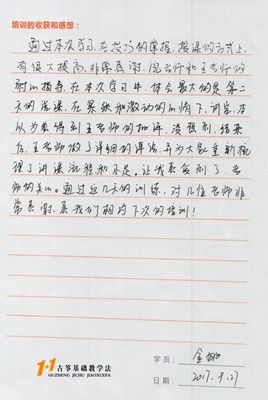 培训的收获和感想：
通过本次学习,在技巧的掌握,授课的方式上,
有很大提高,非常感谢,老师和王老师的
耐心指导,在本次学习中,体会最大的是第二
天的说课,在紧张和激动的心情下,讲完,本
以为要得到王老师的批评,没想到,结果
在,王老师做了详细的评语,并为大家重新梳
理了讲课流程和不足。让我感受到了,老
师的关心。通过这几天的训练,对几位老师非
常感谢,愿我们相约下次的培训!
1+1 古筝基础教学法
GUZHENG JICHU JIAOXUEFA
学员:
日期: 2017.9.27